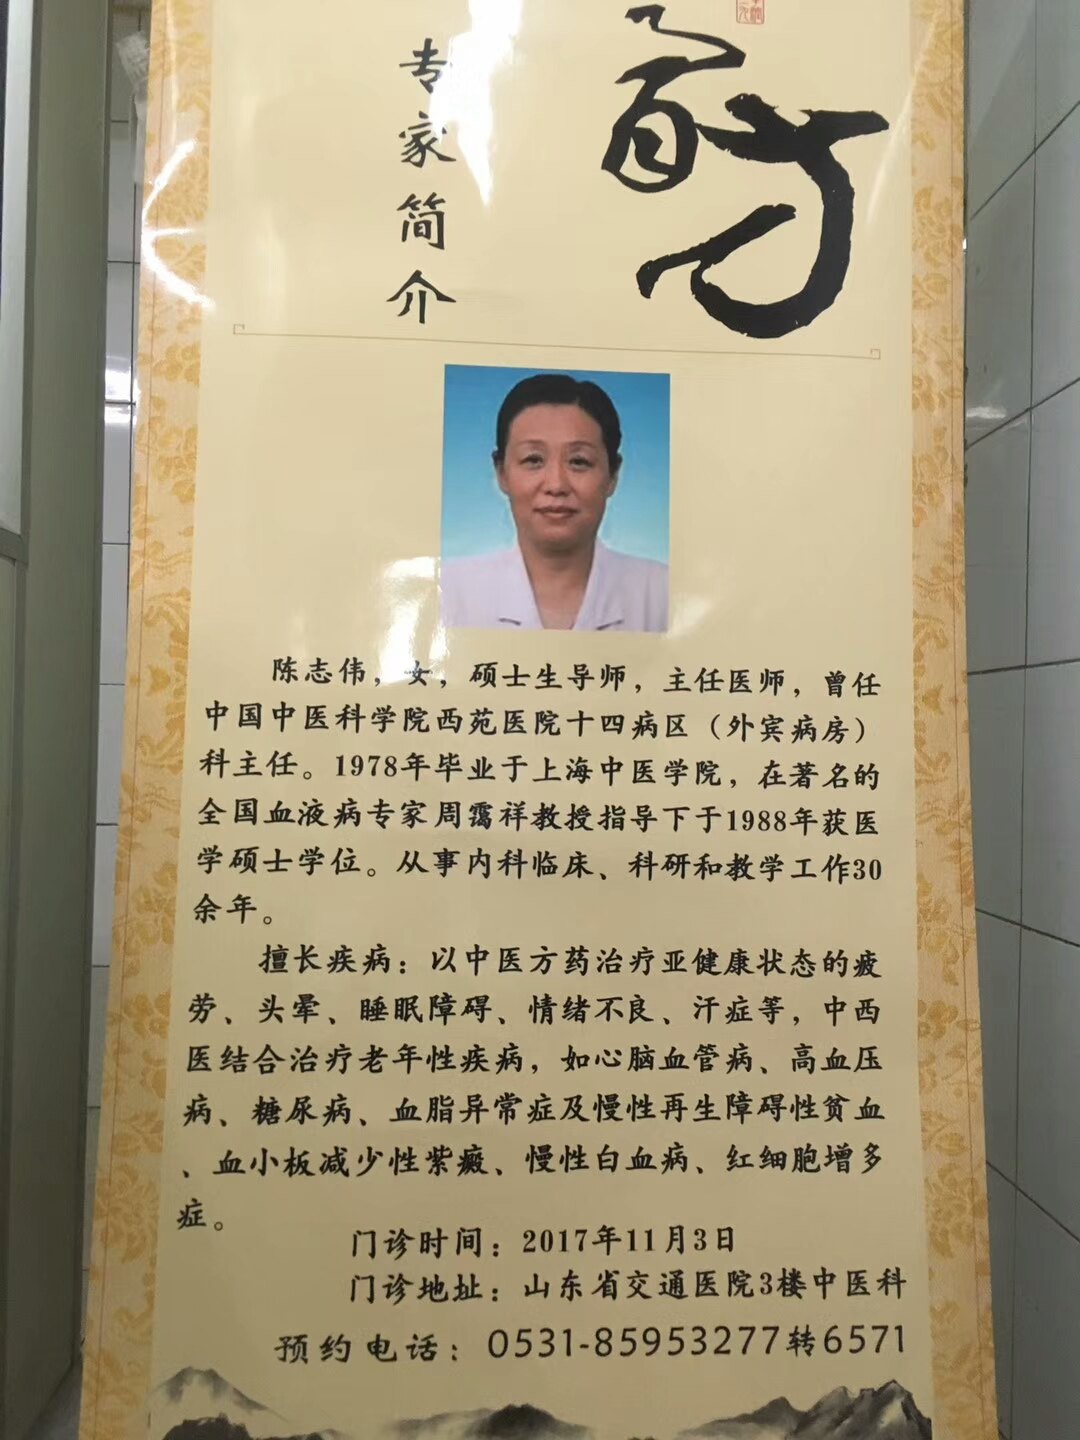 专家简介
陈志伟，女，硕士生导师，主任医师，曾任
中国中医科学院西苑医院十四病区（外宾病房）
科主任。1978年毕业于上海中医学院，在著名的
全国血液病专家周霭祥教授指导下于1988年获医
学硕士学位。从事内科临床、科研和教学工作30
余年。
擅长疾病：以中医方药治疗亚健康状态的疲
劳、头晕、睡眠障碍、情绪不良、汗症等，中西
医结合治疗老年性疾病，如心脑血管病、高血压
病、糖尿病、血脂异常症及慢性再生障碍性贫血
、血小板减少性紫癜、慢性白血病、红细胞增多
症。
门诊时间：2017年11月3日
门诊地址：山东省交通医院3楼中医科
预约电话：0531-85953277转6571